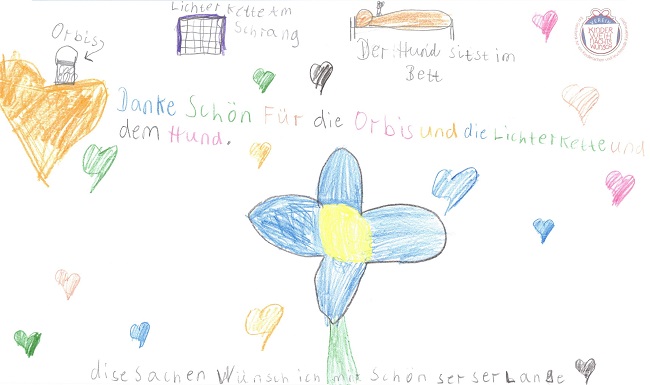 Lichterkette am
Schrang
Orbis
Der Hund sitst im
Bett
KINDER
WEIH
NACHTS
WUNSCH
Danke Schön Für die Orbis und die Lichterkette und
dem Hund.
dise Sachen Wünsch ich mir Schön ser ser Lange